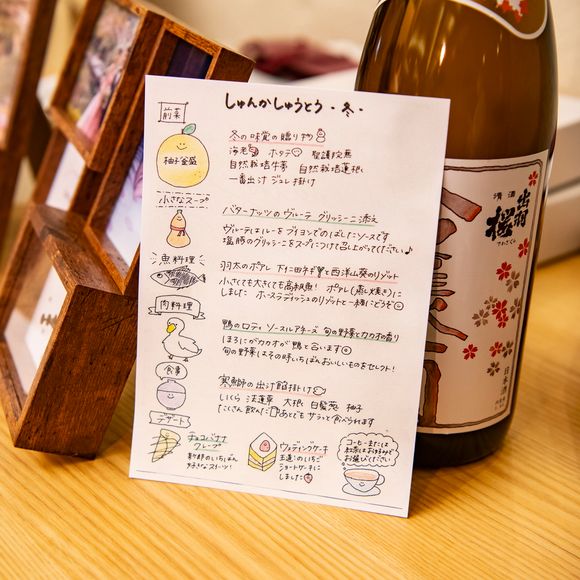 しゅんかしゅうとう・冬・
前菜
柚子釜盛
冬の味覚の贈り物
海老 ホタテ
自然栽培牛蒡 自然栽培蓮根
一番出汁ジュレ掛け
小さなスープ
バターナッツのヴルーテ グリッシーニ添え
ヴルーテはルーをブイヨンでのばしたソースです
塩豚のグリッシーニをスープにつけて召し上がってください♪
魚料理
羽太のポアレ 下仁田ネギと西洋山葵のリゾット
小さくても大きくても高級魚! ポアレ(蒸し焼き)に
しました ホースラディッシュのリゾットと一緒にどうぞ
肉料理
鴨のロティ ソースルアネーズ 旬の野菜とカカオの香り
ほろにがカカオが鴨と合います
旬の野菜はその時いちばんおいしいものをセレクト!
食事
寒鰤の出汁餡掛け
しらす 法蓮草 大根 白髪葱 柚子
たくさん飲んだあとでもサラッと食べられます
デザート
チョコバナナ
クレープ
新郎のいちばん
好きなスイーツ!
ウェディングケーキ
王道のいちご
ショートケーキに
しました
コーヒーまたは
紅茶はお好みで
お選びください
清酒
出羽桜
でわざくら
日本酒